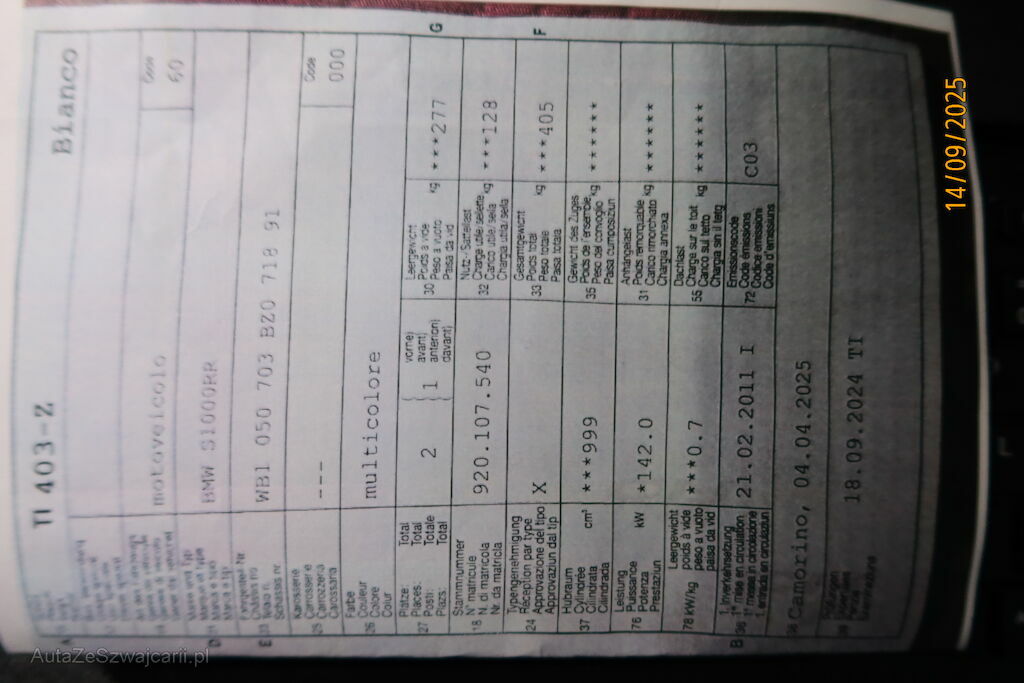 TI 403-Z
Bianco
A
Code
motoveicolo
60
D
BMW S1000RR
E 23
WB1 050 703 BZ0 718 91
Karosserie
Carrosserie
Carrozzeria
Carossaria
25
---
Code
000
Farbe
Couleur
Colore
Colur
26
multicolore
Plätze: Total
Places: Total
Posti: Totale
Plazs: Total
27
2
1
vorne)
avant)
anteriori)
davant)
Leergewicht
Poids à vide
Peso a vuoto
Paisa da vid
30
kg
***277
G
Stammnummer
N° matricule
N. di matricola
Nr. da matricla
18
920.107.540
Nutz-/Sattellast
Charge utile/sellette
Carico utile/sella
Chargia utila/sella
32
kg
***128
Typengenehmigung
Réception par type
Approvazione del tipo
Approvaziun dal tip
24
X
Gesamtgewicht
Poids total
Peso totale
Paisa totala
33
kg
***405
F
Hubraum
Cylindrée
Cilindrata
Cilindrada
37
cm³
***999
Gewicht des Zuges
Poids de l'ensemble
Peso del convoglio
Paisa cumposiziun
35
kg
******
Leistung
Puissance
Potenza
Prestaziun
76
kW
*142.0
Anhängelast
Poids remorquable
Carico rimorchiato
Chargia annexa
31
kg
******
Leergewicht
poids à vide
peso a vuoto
paisa da vid
78 kW/kg
***0.7
Dachlast
Charge sur le toit
Carico sul tetto
Chargia sin il tetg
55
kg
******
1. Inverkehrsetzung
1re mise en circulation
1a messa in circolazione
1. entrada en circulaziun
B 36
21.02.2011 I
Emissionscode
Code émissions
Codice emissioni
Code d'emissiuns
72
C03
Camorino, 04.04.2025
18.09.2024 TI
14/09/2025
AutaZeSzwajcarii.pl